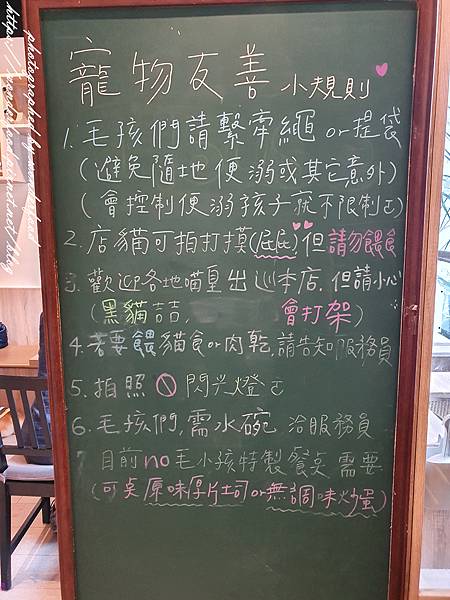 寵物友善 小規則
1. 毛孩們請繫牽繩 or 提袋
(避免隨地便溺或其它意外)
(會控制便溺孩子就不限制ㄛ)
2. 店貓可拍打摸(屁屁)但請勿餵食
3. 歡迎各地喵星出巡本店, 但請小心
(黑貓喆喆, 會打架)
4. 若要餵貓食or肉乾, 請告知服務員
5. 拍照 閃光燈ㄛ
6. 毛孩們, 需水碗 洽服務員
7 目前no毛小孩特製餐点 需要
(可点原味厚片土司or無調味炒蛋)